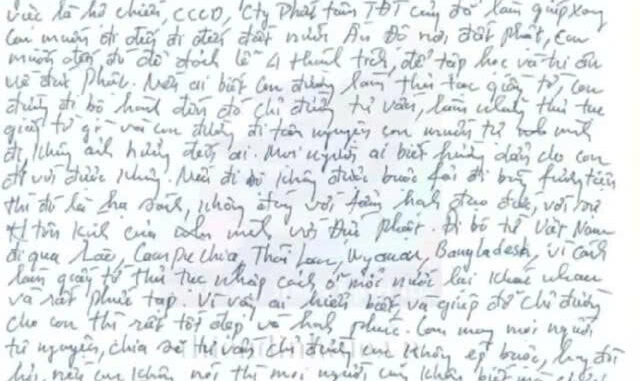 việc là hộ chiếu, CCCD, Cty Phát tâm TĐT cũng đã làm giúp xong
con muốn đi đến đất nước Ấn Độ nơi đất Phật, con
muốn đến đó để đảnh lễ 4 thánh tích, để tập học và tri ân
về đức Phật. Nếu ai biết con đường làm thủ tục giấy tờ, con
đường đi bộ hành đến đó chỉ đường tư vấn, làm những thủ tục
giấy tờ gì và con đường đi tâm nguyện con muốn tự mình
đi, không ảnh hưởng đến ai. Mọi người ai biết hướng dẫn cho con
đi với được không. Nếu đi bộ không được bước phải đi bằng phương tiện
thì đó là hạ sách, không đúng với tâm hạnh đạo đức, với sự
tôn kính của mình với Đức Phật. Đi bộ từ Việt Nam
đi qua Lào, Campuchia, Thái Lan, Myanmar, Bangladesh, vì cách
làm giấy tờ thủ tục nhập cảnh, ở mỗi nước lại khác nhau
và rất phức tạp. Vì vậy ai hiểu biết và giúp đỡ chỉ đường
cho con thì rất tốt đẹp và hạnh phúc. Con mong mọi người
tự nguyện, chia sẻ tư vấn chỉ đường con không ép buộc, hay đòi
hỏi, nếu con không nói thì mọi người cũng không biết